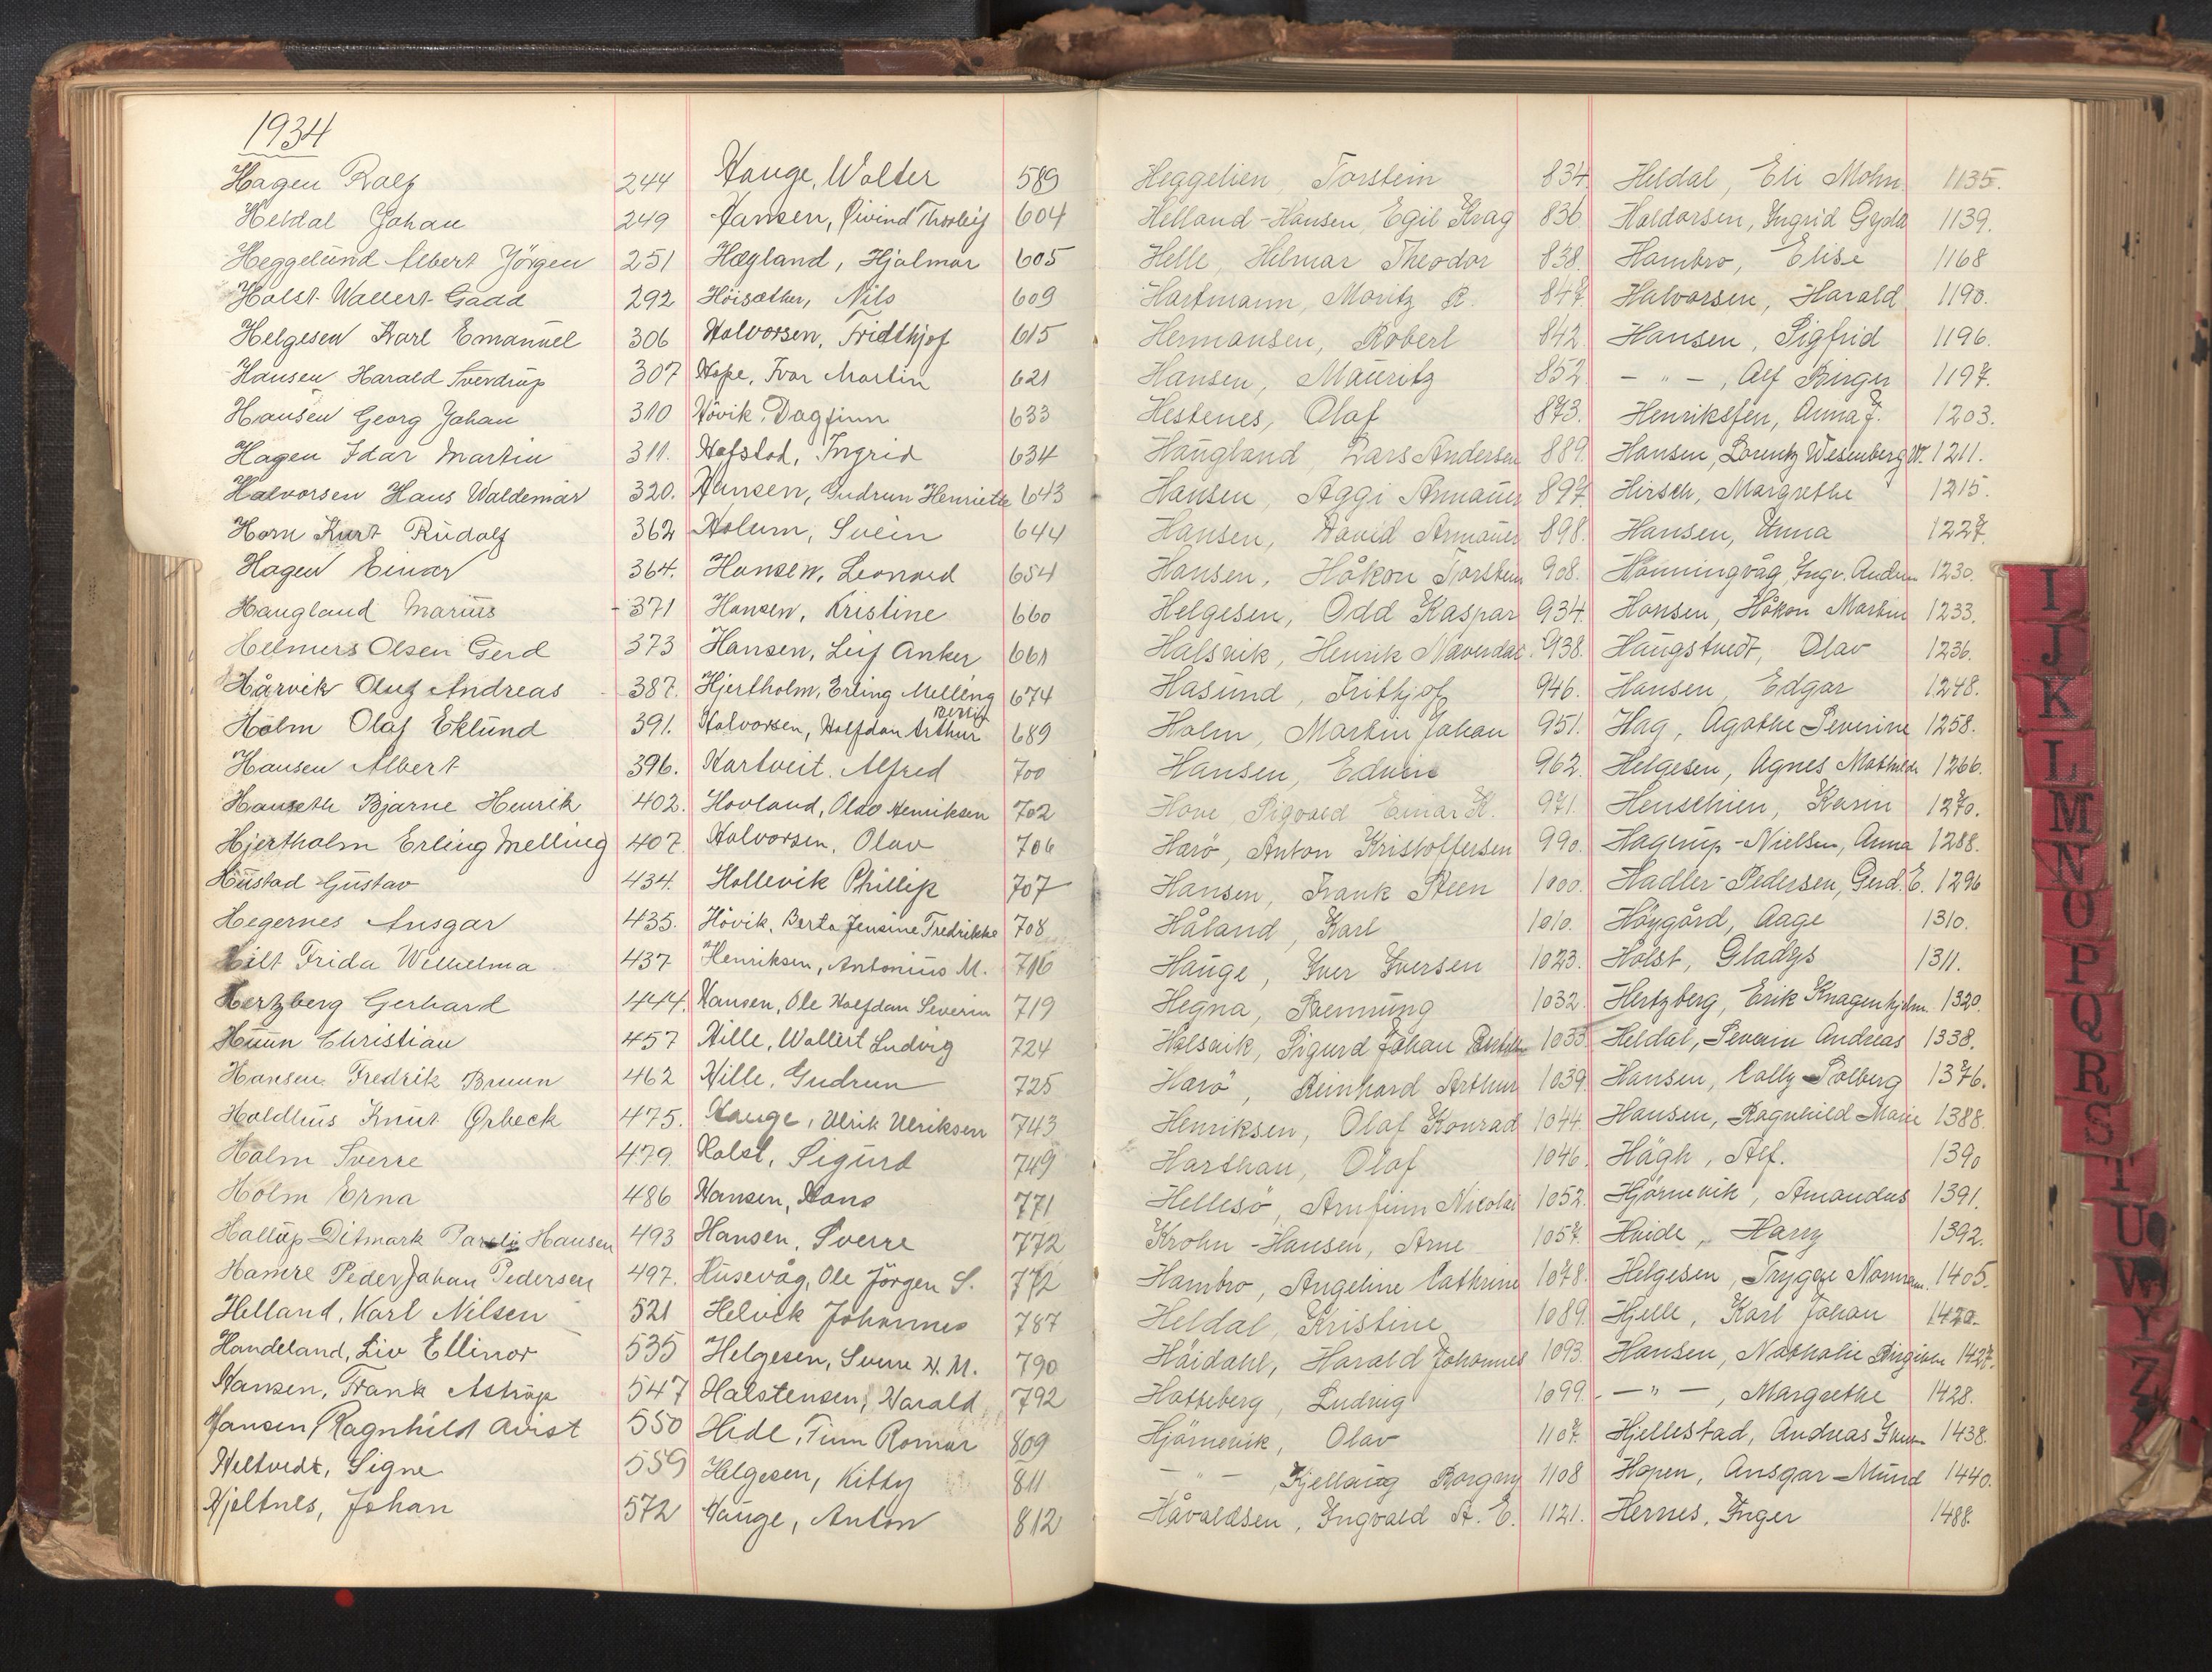 1934
Hagen Ralf 244
Heldal Johan 249
Heggelund Albert Jörgen 251
Holst Wallert Gadd 292
Helgesen Karl Emanuel 306
Hansen Harald Sverdrup 307
Hansen Georg Johan 310
Hagen Idar Martin 311.
Halvorsen Hans Waldemar 320.
Horn Kurt Rudolf 362
Hagen Einar 364.
Haugland Marius 371
Helmers Olsen Gerd 373
Hårvik Oluf Andreas 387.
Holm Olaf Eklund 391.
Hansen Albert 396.
Hanseth Bjarne Henrik 402.
Hjertholm Erling Melling 407
Hustad Gustav 434.
Hegernes Ansgar 435.
Hilt Frida Wilhelma 437
Hertzberg Gerhard 444.
Huun Christian 457
Hansen Fredrik Bruun 462
Holdhus Knut Ørbeck 475.
Holm Sverre 479.
Holm Erna 486
Hallup Ditmark Parelli Hansen 493
Hamre Peder Johan Pedersen 497.
Helland, Karl Nilsen 521
Handeland, Liv Ellinor 535
Hansen, Frank Astrup 547
Hansen, Ragnhild Qvist 550
Heltvedt, Signe 559
Hjeltnes, Johan 572
Hauge, Walter 589
Hansen, Øivind Thorleif 604
Hægland, Hjalmar 605
Höisæther, Nils 609
Halvorsen, Fridthjof 615
Hope, Ivar Martin 621
Hövik, Dagfinn 633
Hafstad, Ingrid 634
Hansen, Gudrun Henriette 643
Holum, Svein 644
Hansen, Leonard 654
Hansen, Kristine 660
Hansen, Leif Anker 661
Hjertholm, Erling Melling 674
Halvorsen, Halfdan Arthur Bertin 689
Hartveit. Alfred 700
Hovland, Olav Henriksen 702
Halvorsen, Olav 706
Hollevik Phillip 707
Hövik, Berta Jensine Fredrikke 708
Henriksen, Antonius M. 716
Hansen, Ole Halfdan Severin 719
Hille, Wallert Ludvig 724
Hille, Gudrun 725
Hauge, Ulrik Ulriksen 743
Holst, Sigurd 749
Hansen, Hans 771
Hansen, Sverre 772
Husevåg, Ole Jörgen S. 772
Helvik Johannes 787
Helgesen, Sverre H. M. 790
Halstensen, Harald 792
Hide, Finn Romar 809
Helgesen, Kitty 811
Hauge, Anton 812
Heggelien, Torstein 834
Helland-Hansen, Egil Krag 836
Helle, Helmar Theodor 838.
Hartmann, Moritz R. 847
Hermansen, Robert 842.
Hansen, Mauritz 852.
Hestenes, Olaf 873.
Haugland, Lars Andersen 889.
Hansen, Aggi Annauer 897.
Hansen, David Annauer 898.
Hansen, Håkon Torstein 908.
Helgesen, Odd Kaspar 934.
Halsvik, Henrik Næverdal 938.
Hasund, Frithjof 946.
Holm, Martin Johan 951.
Hansen, Edvin 962.
Hove, Sigvald Einar K. 971.
Harö, Anton Kristoffersen 990.
Hansen, Frank Steen 1000.
Håland, Karl 1010.
Hauge, Iver Iversen 1023.
Hegna, Svennung 1032.
Halsvik, Sigurd Johan 1033
Harö, Reinhard Arthur 1039.
Henriksen, Olaf Konrad 1044.
Harthau, Olaf 1046.
Hellesö, Arnfinn Nicolai 1052.
Krohn-Hansen, Arne 1057.
Hambro, Angeline Cathrine 1078.
Heldal, Kristine 1089.
Håidahl, Harald Johannes 1093.
Hatteberg, Ludvig 1099.
Hjörnevik, Olav 1107.
— " —, Kjellaug Borgny 1108
Håvaldsen, Ingvald A. E. 1121.
Heldal, Eli Mohn 1135.
Haldorsen, Ingrid Gyda 1139.
Hambro, Elise 1168
Halvorsen, Harald 1190.
Hansen, Sigfrid 1196.
— " —, Alf Birger 1197.
Henriksen, Anna J. 1203.
Hansen, Lorentz Wesenberg W. 1211.
Hirsch, Margrethe 1215.
Hansen, Anna 1227.
Honningvåg, Ingv. 1230.
Hansen, Håkon Martin 1233.
Haugstvedt, Olav 1236.
Hansen, Edgar 1248.
Hag, Agathe Severine 1258.
Helgesen, Agnes Mathilde 1266.
Henschien, Karin 1270.
Hagerup-Nielsen, Anna 1288.
Hadler-Pedersen, Gerd. E. 1296
Höygård, Aage 1310.
Holst, Gladys 1311.
Hertzberg, Erik Knagenhjelm. 1320.
Heldal, Severin Andreas 1338.
Hansen, Cally Solberg 1376.
Hansen, Ragnhild Marie 1388.
Hägh, Alf. 1390
Hjörnevik, Amandus 1391.
Heide, Harry 1392.
Helgesen, Trygge 1405.
Hjelle, Karl Johan 1420.
Hansen, Nathalie Birgitte 1427.
— " —, Margrethe 1428.
Hjellestad, Andreas 1438.
Hopen, Ansgar Mund 1440.
Hernes, Inger 1488.
I
J
K
L
M
N
O
P
Q
R
S
T
U
W
Y
Z